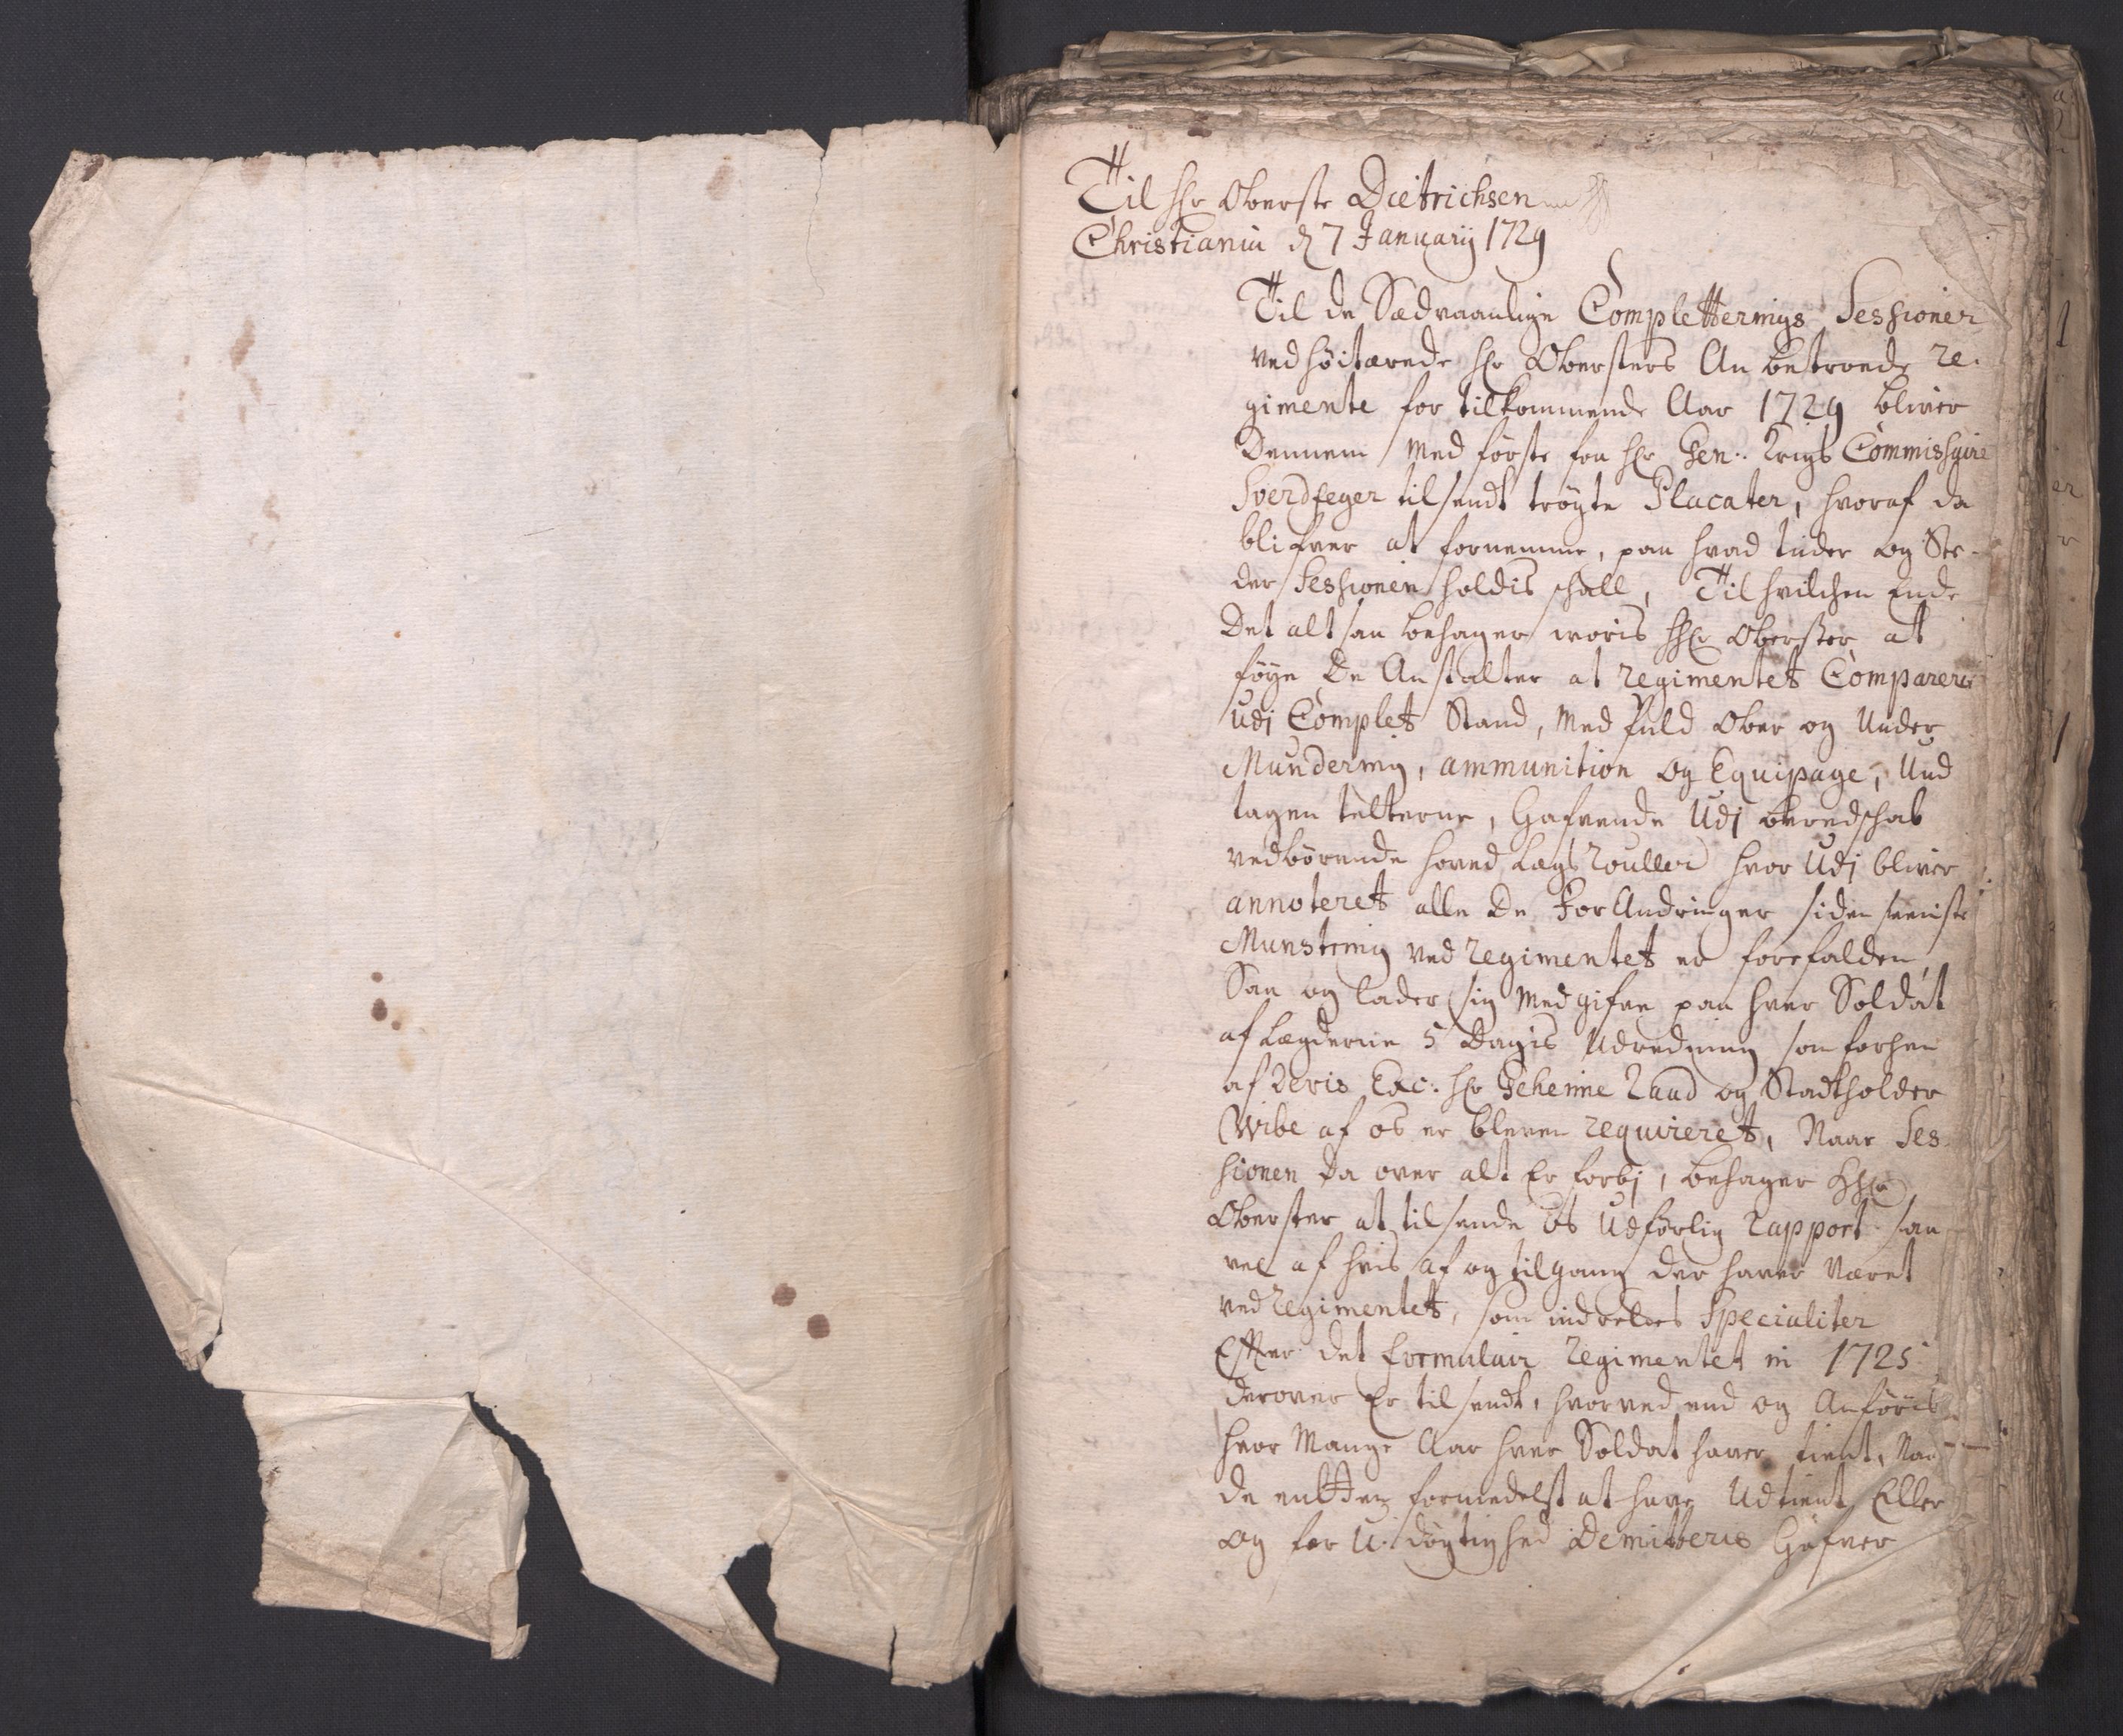 Til hr Oberste Dietrichsen
Christiania d 7 Januarij 1729
Til de Sædvaanlige Completterings Sessioner
ved høitærede hr Obersters An betroede re-
gimente for tilkommende Aar 1729 bliver
Dennem med første fra hr Gen: Krigs Commissaire
Sverdfeger tilsendt trøgte Placater, hvoraf da
blifver at fornemme, paa hvad tiider og Ste-
der Sessionen holdis schall, Til hvilchen Ende
Det altsaa behager woris hr Oberster at
føye De Anstalter at regimentet Comparerer
udj Complet Stand, med fuld Ober og Under
Mundering, ammunition og Equipage, Und
tagen telterne, Hafvende Udj beredschab
vedbørende hoved Lægs Rouller hvor Udj bliver
annoteret alle De For Andringer siden seeniste
Munstring ved regimentet er forefalden,
Saa og lader sig med gifve paa hver Soldat
af Lægderne 5 Dagis Udredning som forhen
af Deris Exc: hr Geheime Raad og Stadtholder
Wibe af os er bleven requireret, Naar Ses-
sionen da over alt Er forbj, behager hr
Oberster at tilsende Os Udførlig Rapport saa
vel af hvis af og tilgang der haver Været
ved regimentet, som indrettes Specialiter
Efter det formulair regimentet in 1725
derover Er tilsendt, hvorved end og Anføris
hvor Mange Aar hver Soldat haver tient, Naar
de entten formedelst at have Udtient Eller
og for U-døgtighed Demitteris Hafver